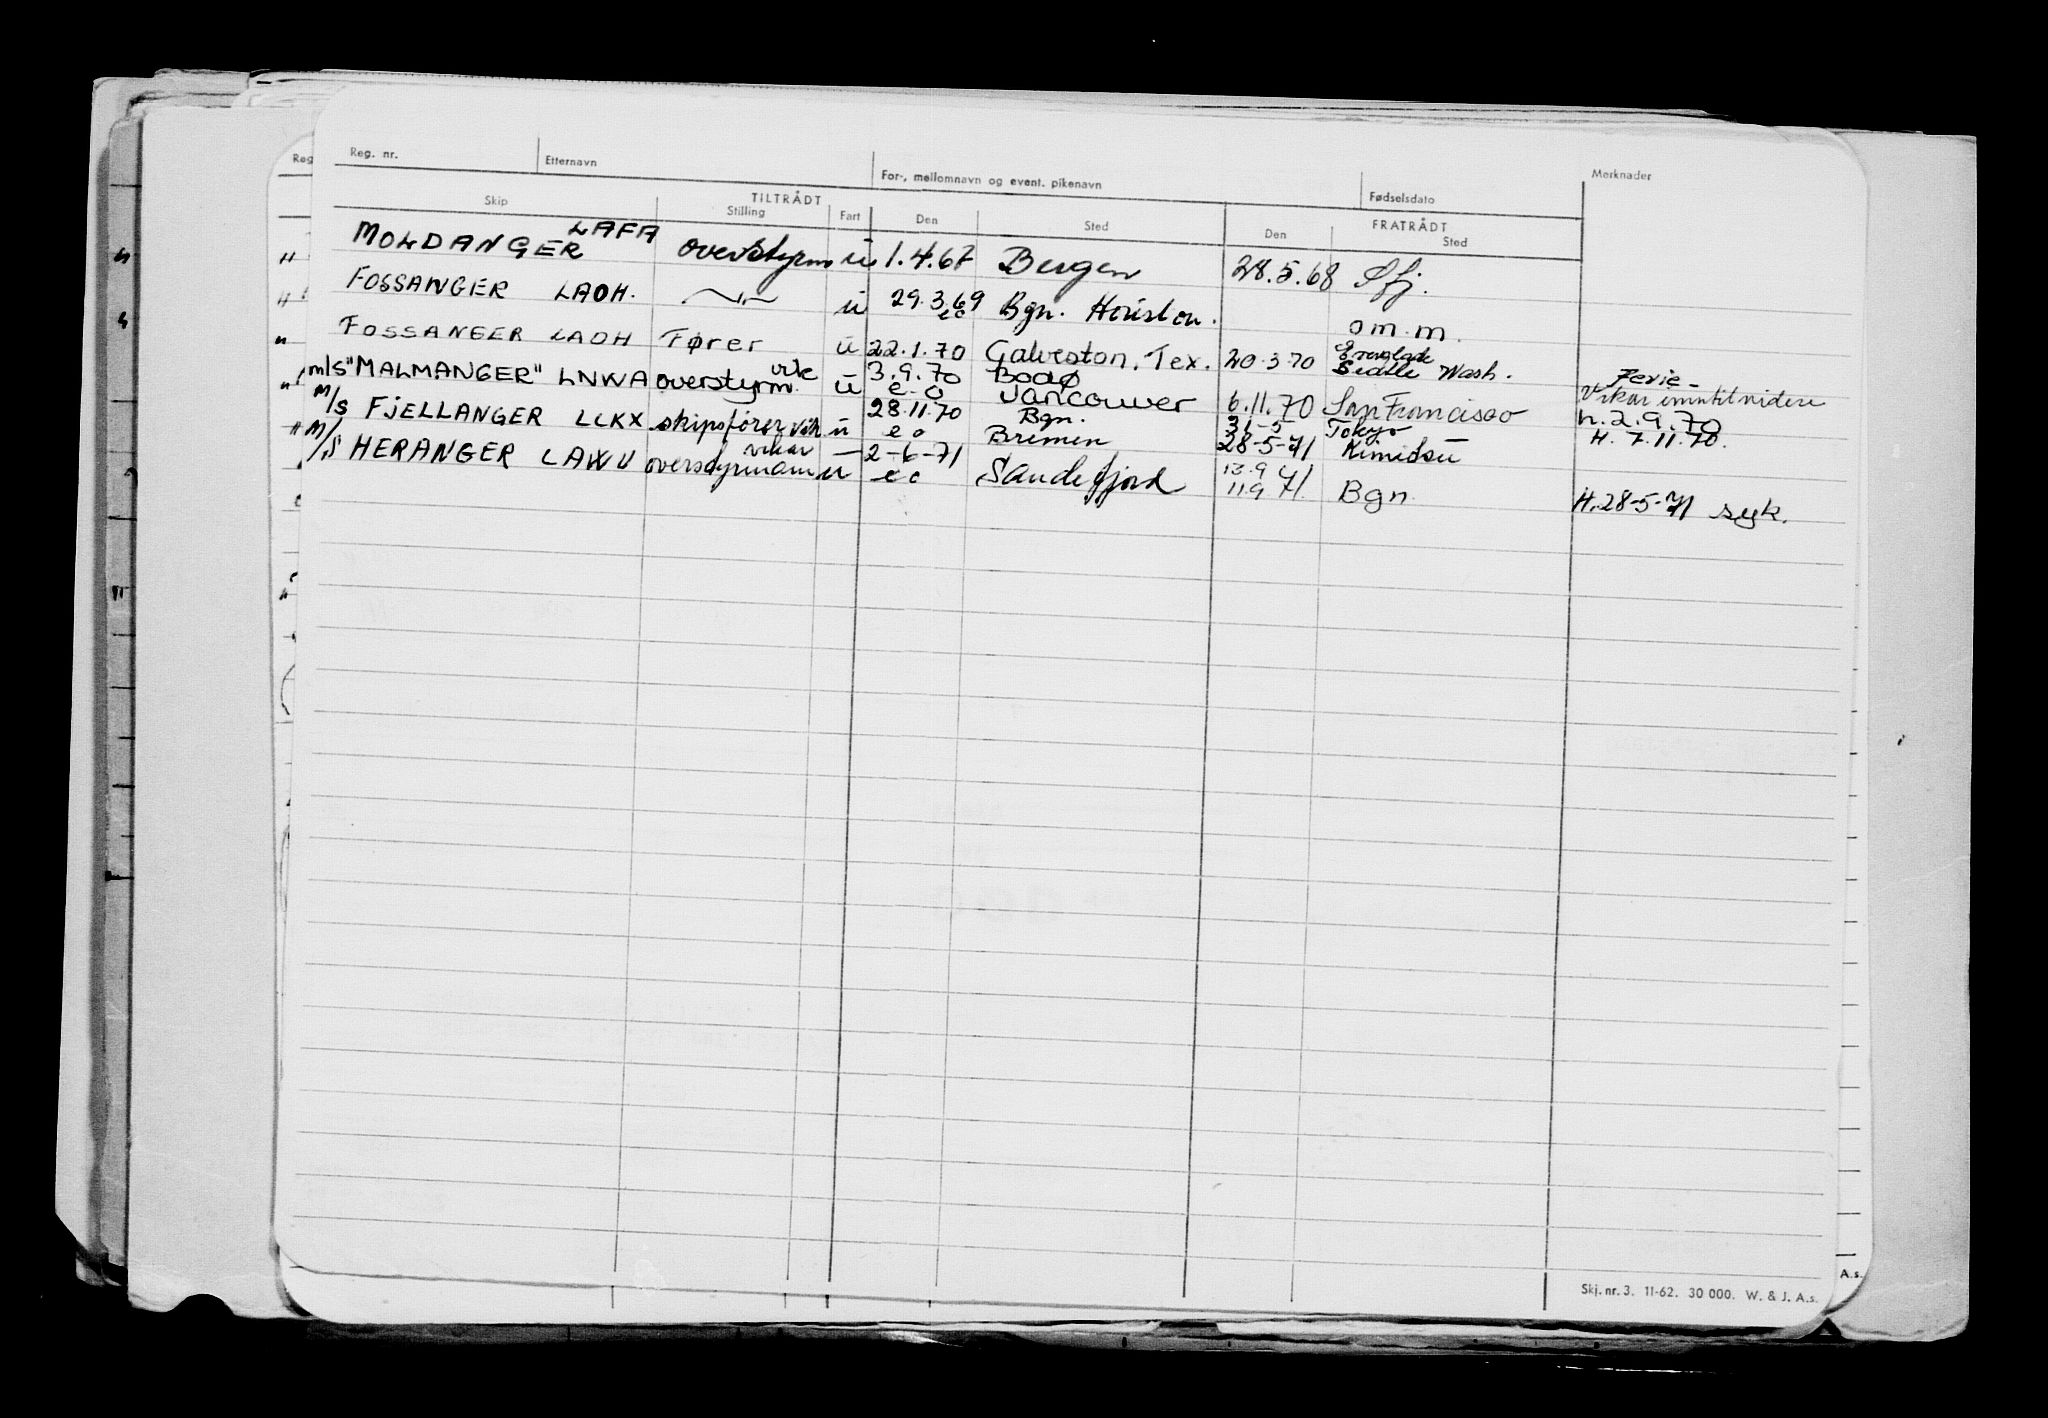 Reg. nr. Etternavn For-, mellomnavn og event. pikenavn Fødselsdato Merknader
TILTRÅDT FRATRÅDT
Skip Stilling Fart Den Sted Den Sted
MOLDANGER LAFA overstyrm u 1.4.67 Bergen 28.5.68 Sfj.
FOSSANGER LAOH. —"— u 29.3.69 eo Bgn. Houston. om.m.
FOSSANGER LAOH Fører u 22.1.70 Galveston, Tex. 20.3.70 Everglade Seattle Wash.
m/s "MALMANGER" LNWA overstyrm. vik u 3.9.70 e.o Bodø Vancouver 6.11.70 San Francisco Ferie- Vikar inntil videre h.2.9.70
M/S FJELLANGER LCKX skipsfører vik u 28.11.70 eo Bgn. Bremen 31-5 28-5-71 Tokyo Kimidsu H. 7.11.70.
M/S HERANGER LAWU overstyrmann vikar u 2-6-71 eo Sandefjord 13.9 11.9 71. Bgn. H.28-5-71 syk.
Skj. nr. 3. 11-62. 30 000. W. & J. A.s.